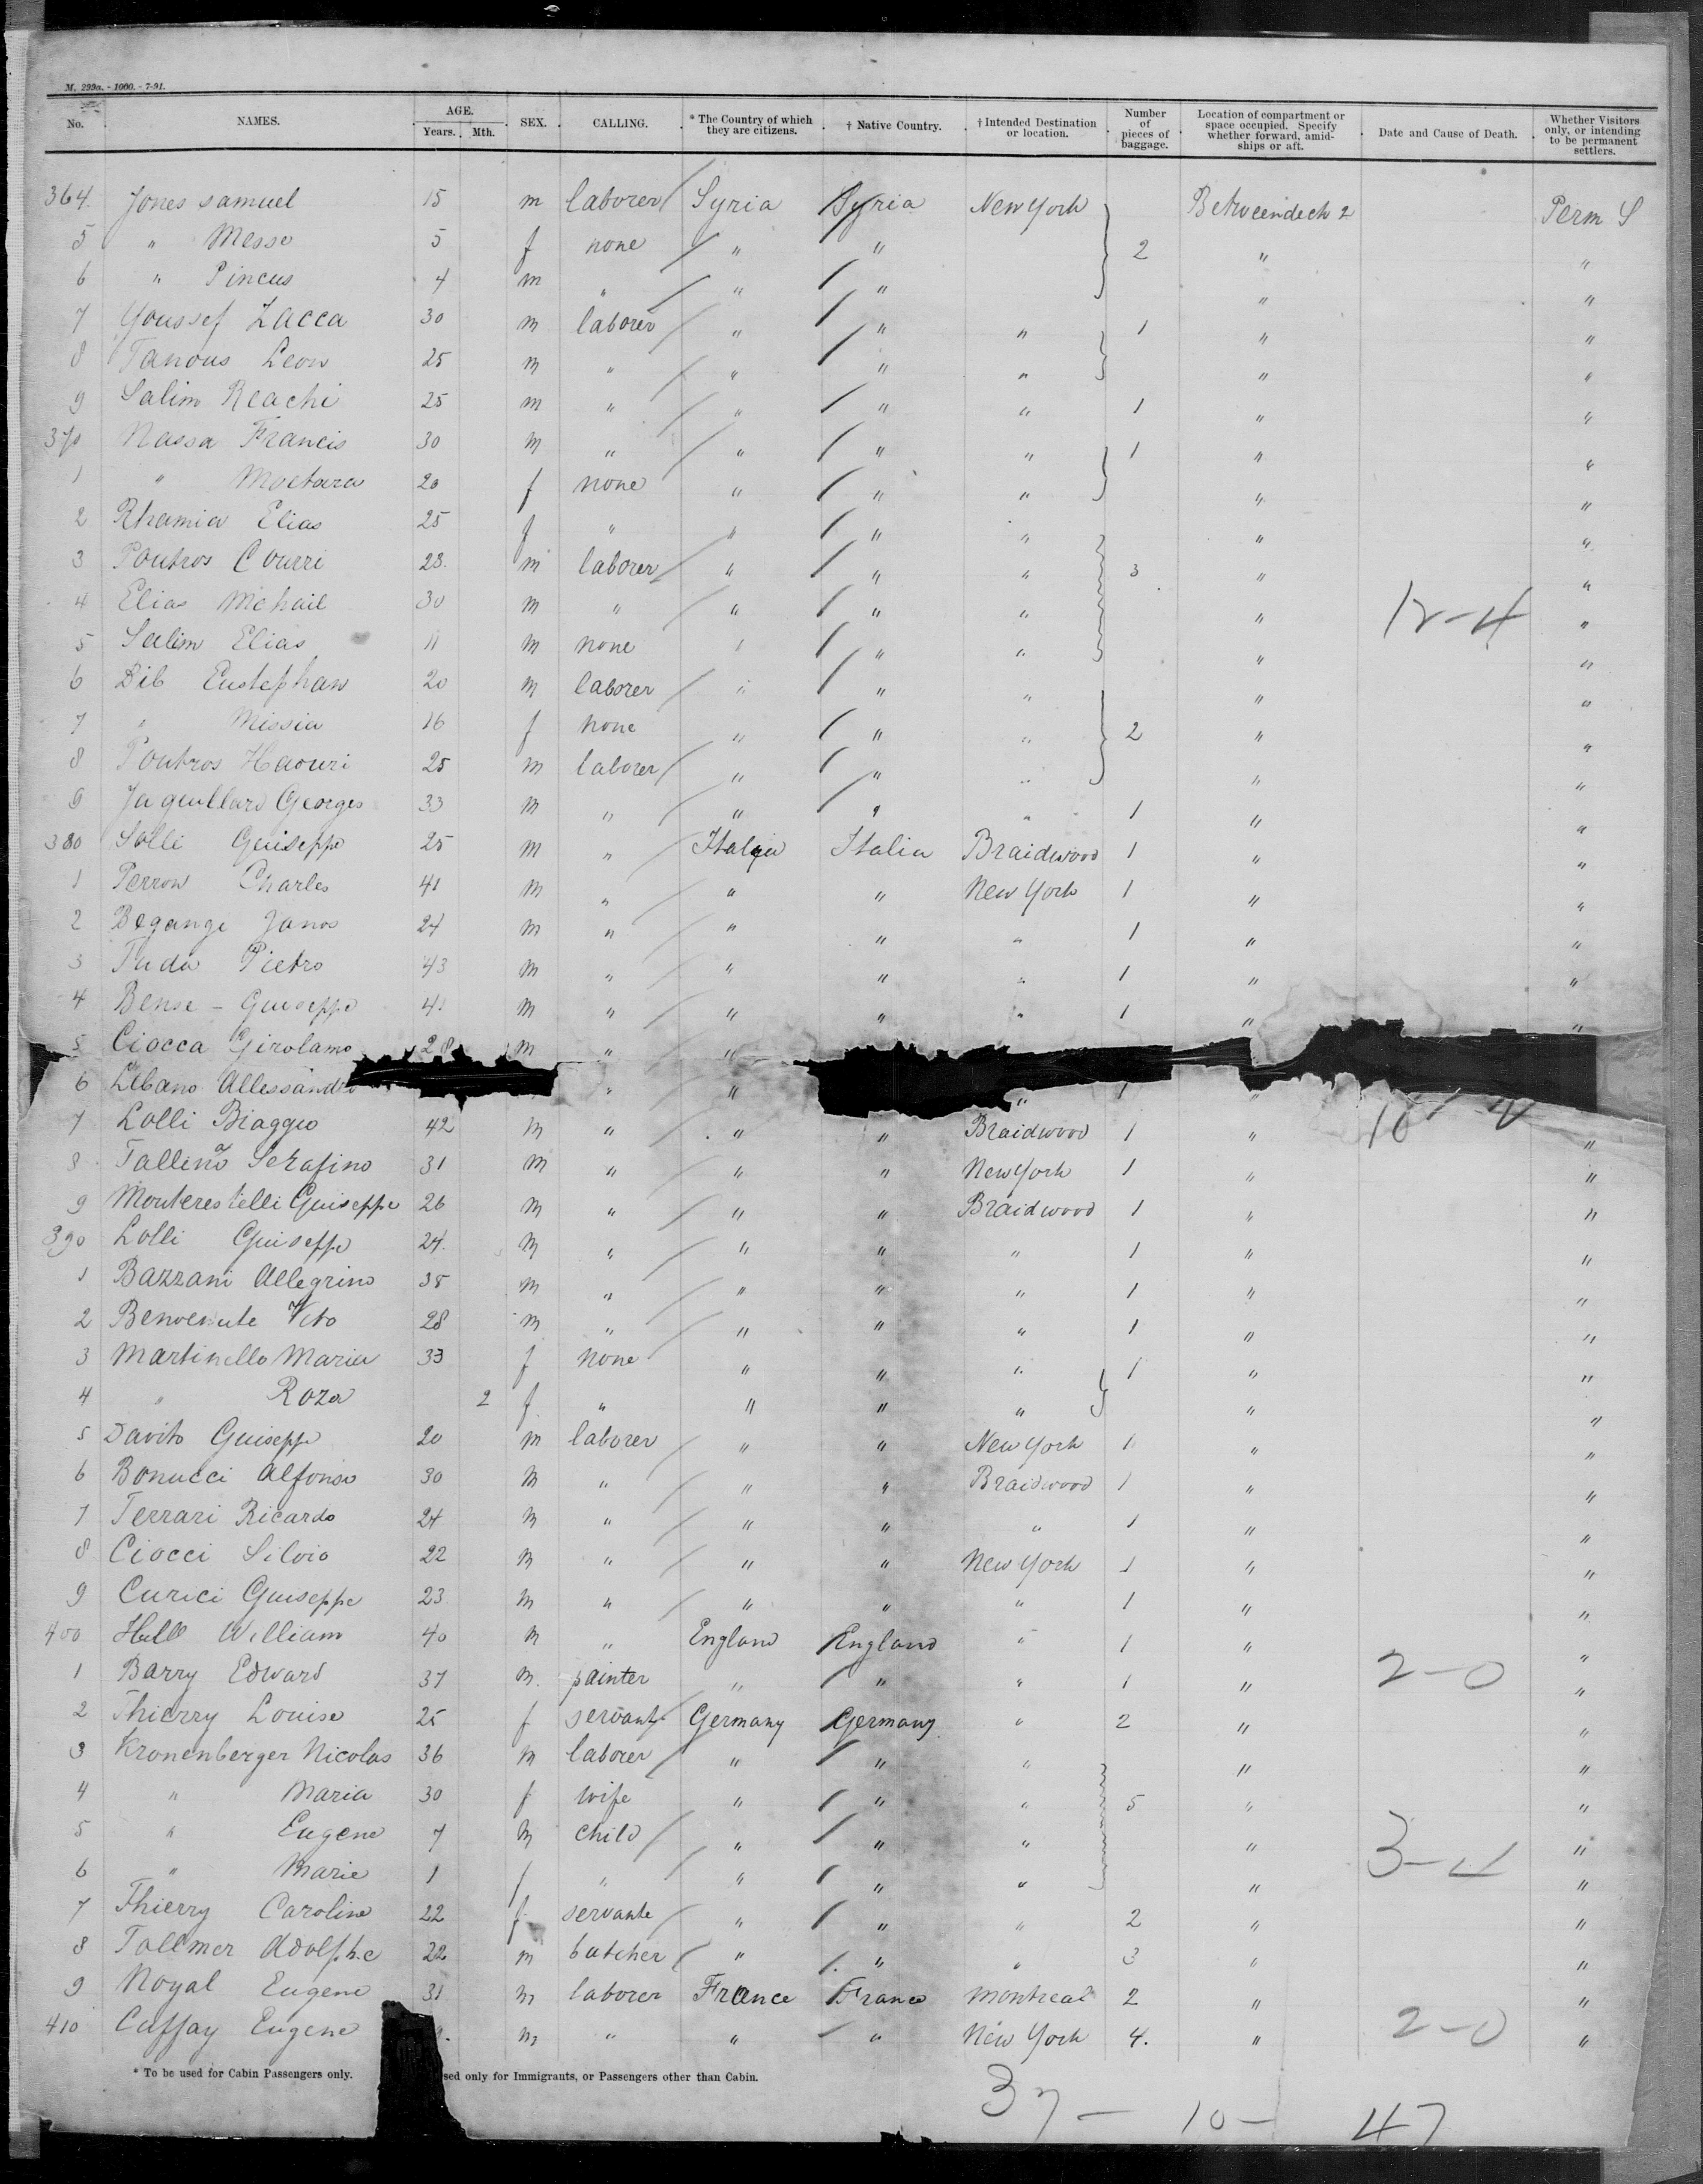 M. 299a. - 1000. - 7-91.
No. NAMES. AGE. Years. Mth. SEX. CALLING. * The Country of which they are citizens. † Native Country. † Intended Destination or location. Number of pieces of baggage. Location of compartment or space occupied. Specify whether forward, amid-ships or aft. Date and Cause of Death. Whether Visitors only, or intending to be permanent settlers.
364. Jones samuel 15 m laborer Syria Syria New York Betweendeck 2 Perm S
5 " Messe 5 f none " " 2 " "
6 " Pincus 4 m " " " " "
7 Youssef Zacca 30 m laborer " " " 1 " "
8 Tanous Leon 25 m " " " " " "
9 Salim Reachi 25 m " " " " 1 " "
370 Nassa Francis 30 m " " " " 1 " "
1 " Moctara 20 f none " " " " "
2 Rhamia Elias 25 f " " " " " "
3 Poutros Courri 28. m laborer " " " 3 " "
4 Elias Mchail 30 m " " " " " 12-4 "
5 Salim Elias 11 m none " " " " "
6 Dib Eustephan 20 m laborer " " " " "
7 " Missia 16 f none " " " 2 " "
8 Poutros Haouri 25 m laborer " " " " "
9 Jaguillard Georges 33 m " " " " 1 " "
380 Solli Guiseppe 25 m " Italia Italia Braidwood 1 " "
1 Perron Charles 41 m " " " New York 1 " "
2 Begange Janos 24 m " " " " 1 " "
3 Tuda Pietro 43 m " " " " 1 " "
4 Bense - Guiseppe 41 m " " " " 1 " "
5 Ciocca Girolamo 28 m " "
6 Libano Allessandr " " " 1 "
7 Lolli Biaggio 42 m " " " Braidwood 1 " "
8 Tallino Serafino 31 m " " " New York 1 " "
9 Monterestelli Guiseppe 26 m " " " Braidwood 1 " "
390 Lolli Guiseppe 24. m " " " " 1 " "
1 Bazzani Allegrino 38 m " " " " 1 " "
2 Benvenute Vito 28 m " " " " 1 " "
3 Martinello Maria 33 f none " " " 1 " "
4 " Roza 2 f " " " " " "
5 Davito Guiseppe 20 m laborer " " New York 1 " "
6 Bonucci Alfonso 30 m " " " Braidwood 1 " "
7 Ferrari Ricardo 24 m " " " " 1 " "
8 Ciocci Silvio 22 m " " " New York 1 " "
9 Curici Guiseppe 23 m " " " " 1 " "
400 Hill William 40 m " England England " 1 " "
1 Barry Edward 37 m. painter " " " 1 " 2-0 "
2 Thierry Louise 25 f servante Germany Germany " 2 " "
3 Kronenberger Nicolas 36 m laborer " " " " "
4 " Maria 30 f wife " " " 5 " "
5 " Eugene 7 m child " " " " 3-4 "
6 " Marie 1 f " " " " " "
7 Thierry Caroline 22 f servante " " " 2 " "
8 Tollmer Adolphe 22 m butcher " " " 3 " "
9 Noyal Eugene 31 m laborer France France Montreal 2 " "
410 Cuffay Eugene m " " " New York 4. " 2-0 "
* To be used for Cabin Passengers only. sed only for Immigrants, or Passengers other than Cabin.
37 - 10 - 47